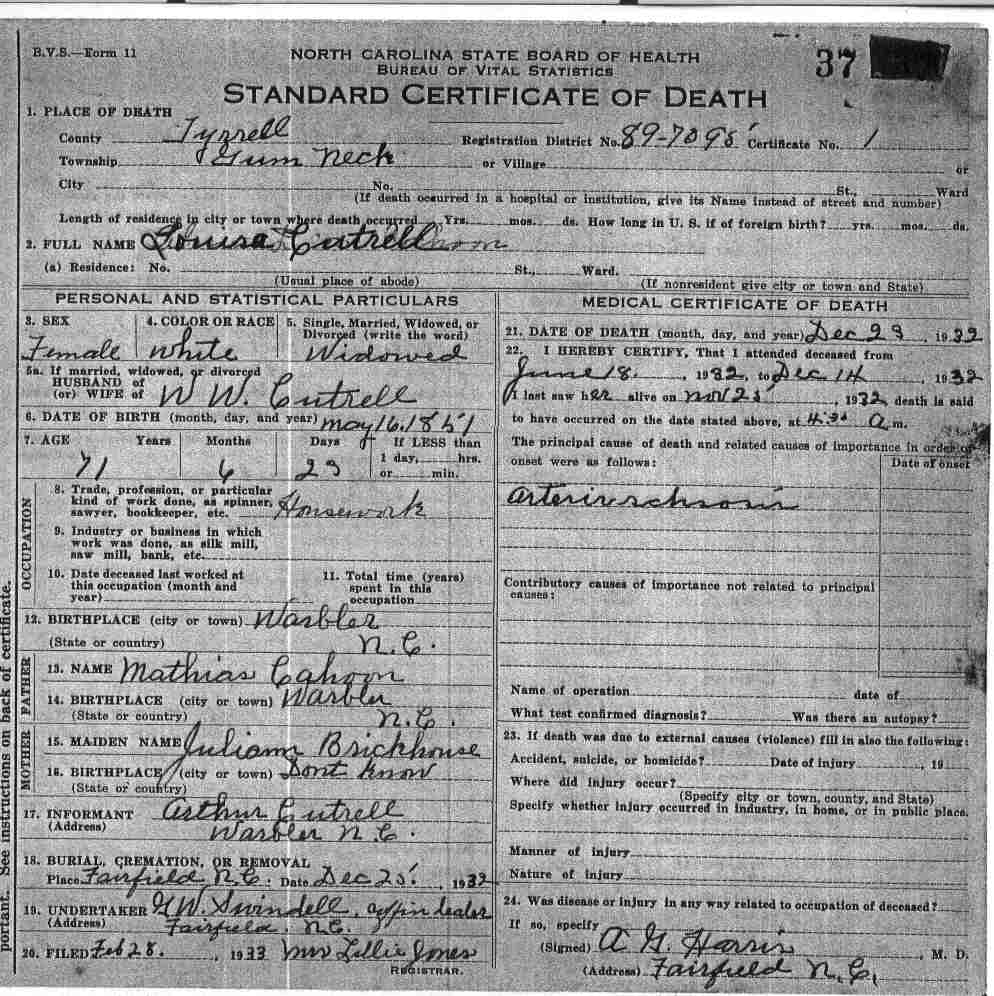 B.V.S.—Form 11
NORTH CAROLINA STATE BOARD OF HEALTH
BUREAU OF VITAL STATISTICS
37
STANDARD CERTIFICATE OF DEATH
1. PLACE OF DEATH
County Tyrrell Registration District No. 89-7095 Certificate No. 1
Township Gum Neck or Village or
City No. St., Ward
(If death occurred in a hospital or institution, give its Name instead of street and number)
Length of residence in city or town where death occurred Yrs. mos. ds. How long in U. S. if of foreign birth? yrs. mos. ds.
2. FULL NAME Louisa Cutrell
(a) Residence: No. St., Ward.
(Usual place of abode) (If nonresident give city or town and State)
PERSONAL AND STATISTICAL PARTICULARS
3. SEX 4. COLOR OR RACE 5. Single, Married, Widowed, or
Divorced (write the word)
Female White Widowed
5a. If married, widowed, or divorced
HUSBAND of
(or) WIFE of W W. Cutrell
6. DATE OF BIRTH (month, day, and year) may 16, 1851
7. AGE Years Months Days If LESS than
1 day, hrs.
or min.
71 6 23
OCCUPATION
8. Trade, profession, or particular
kind of work done, as spinner,
sawyer, bookkeeper, etc. Housework
9. Industry or business in which
work was done, as silk mill,
saw mill, bank, etc.
10. Date deceased last worked at
this occupation (month and
year)
11. Total time (years)
spent in this
occupation
12. BIRTHPLACE (city or town) Warbler
(State or country) N.C.
FATHER
13. NAME Mathias Cahoon
14. BIRTHPLACE (city or town) Warbler
(State or country) N.C.
MOTHER
15. MAIDEN NAME Juliann Brickhouse
16. BIRTHPLACE (city or town) Dont know
(State or country)
17. INFORMANT Arthur Cutrell
(Address) Warbler N.C.
18. BURIAL, CREMATION, OR REMOVAL
Place Fairfield N.C. Date Dec 25, 1932
19. UNDERTAKER G.W. Swindell, coffin dealer
(Address) Fairfield. N.C.
20. FILED Feb 28, 1933 Mrs Lillie Jones
REGISTRAR.
MEDICAL CERTIFICATE OF DEATH
21. DATE OF DEATH (month, day, and year) Dec 23, 1932
22. I HEREBY CERTIFY, That I attended deceased from
June 18, 1932, to Dec 14, 1932
I last saw her alive on Nov 25, 1932, death is said
to have occurred on the date stated above, at 4:30 A m.
The principal cause of death and related causes of importance in order of
onset were as follows: Date of onset
Contributory causes of importance not related to principal
causes:
Name of operation date of
What test confirmed diagnosis? Was there an autopsy?
23. If death was due to external causes (violence) fill in also the following:
Accident, suicide, or homicide? Date of injury , 19
Where did injury occur?
(Specify city or town, county, and State)
Specify whether injury occurred in industry, in home, or in public place.
Manner of injury
Nature of injury
24. Was disease or injury in any way related to occupation of deceased?
If so, specify
(Signed) A G. Harris, M. D.
(Address) Fairfield N.C.
portant. See instructions on back of certificate.